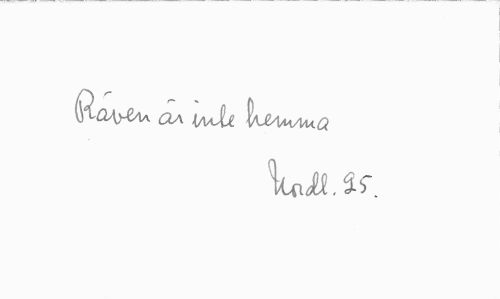 Räven är inte hemma
Nordl. 95.